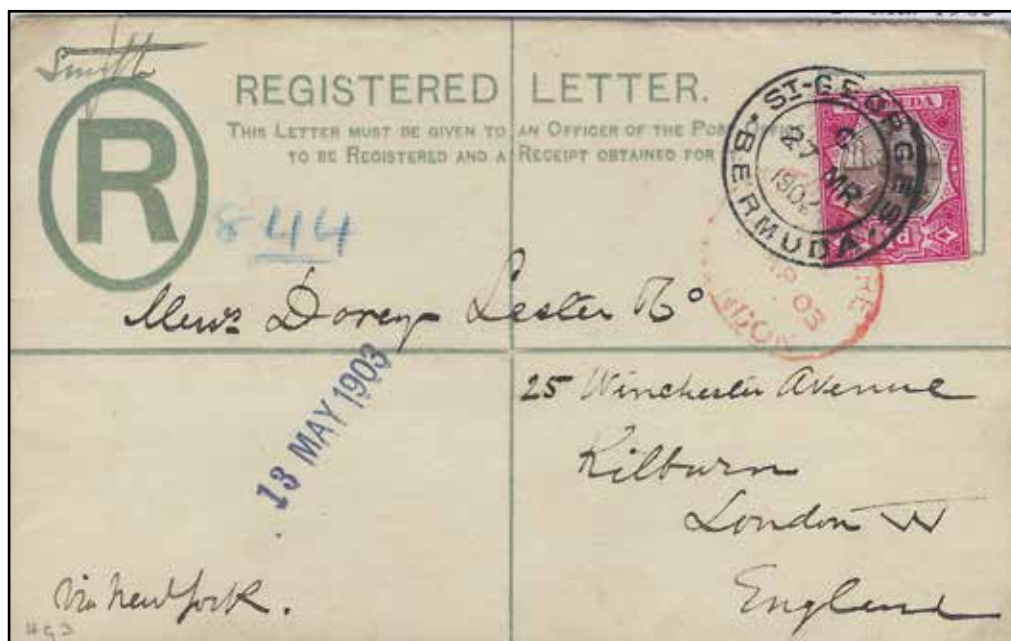 Smyth
R
REGISTERED LETTER.
THIS LETTER MUST BE GIVEN TO AN OFFICER OF THE POST OFFICE
TO BE REGISTERED AND A RECEIPT OBTAINED FOR
844
ST. GEORGE'S
27 MR
BERMUDA
Messrs Dorey Lester & Co
13 MAY 1903
25 Winchester Avenue
Kilburn
London W
England
Via New York.